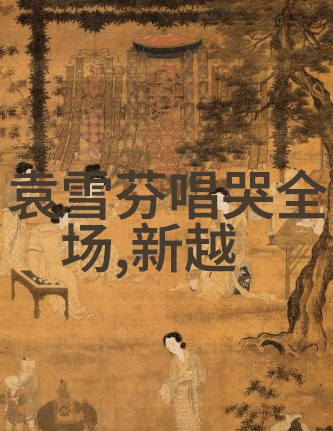 袁雪芬唱哭全
场,新越